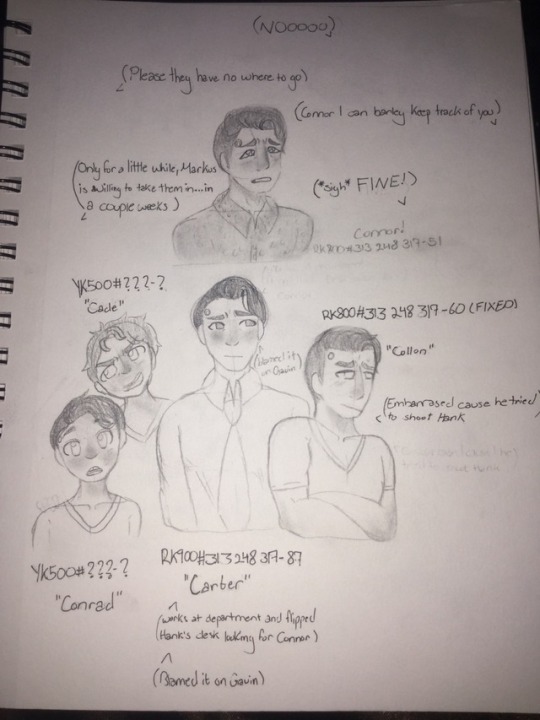 (NOOOOO)
(Please they have no where to go)
(Connor I can barley keep track of you)
(Only for a little while, Markus
is willing to take them in...in
a couple weeks)
(*sigh* FINE!)
Connor!
RK800#313 248 317-51
YK500#???-?
"Cade"
RK800#313 248 317-60 (FIXED)
"Collon"
(Blamed it
on Gavin)
(Embarrased cause he tried
to shoot Hank
YK500#???-?
"Conrad"
RK900#313 248 317-87
"Carber"
(works at department and flipped
Hank's desk looking for Connor)
(Blamed it on Gavin)